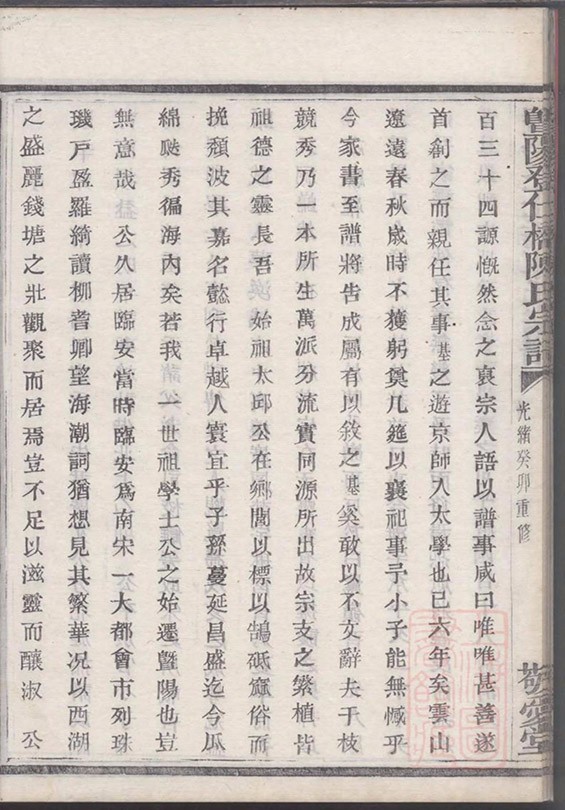 暨陽登仕橋陳氏宗譜
光緒癸卯重修
敬愛堂
百三十四諒慨然念之裒宗人語以譜事咸曰唯唯甚善遂
首創之而親任其事基之遊京師入太學也已六年矣雲山
遼遠春秋歲時不獲躬奠几筵以襄祀事予小子能無慽乎
今家書至譜將告成屬有以敘之基奚敢以不文辭夫于枝
競秀乃一本所生萬派分流實同源所出故宗支之繁植皆
祖德之靈長吾 始祖太邱公在鄉閭以標以鵠砥窳俗而
挽頹波其嘉名懿行卓越人寰宜乎子孫蔓延昌盛迄今瓜
綿瓞秀徧海內矣若我 一世祖學士公之始遷暨陽也豈
無意哉 公久居臨安當時臨安爲南宋一大都會市列珠
璣戸盈羅綺讀柳耆卿望海潮詞猶想見其繁華况以西湖
之盛麗錢塘之壯觀聚而居焉豈不足以滋靈而釀淑 公